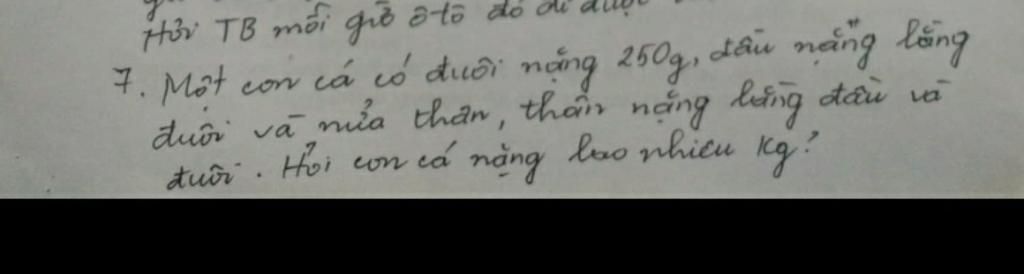 Hỏi TB mỗi giờ ô-tô đó đi được
7. Một con cá có đuôi nặng 250g, đầu nặng bằng
đuôi và nửa thân, thân nặng bằng đầu và
đuôi. Hỏi con cá nặng bao nhiêu kg?